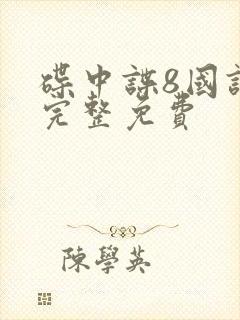 碟中諜8國
完整免費
陳學英